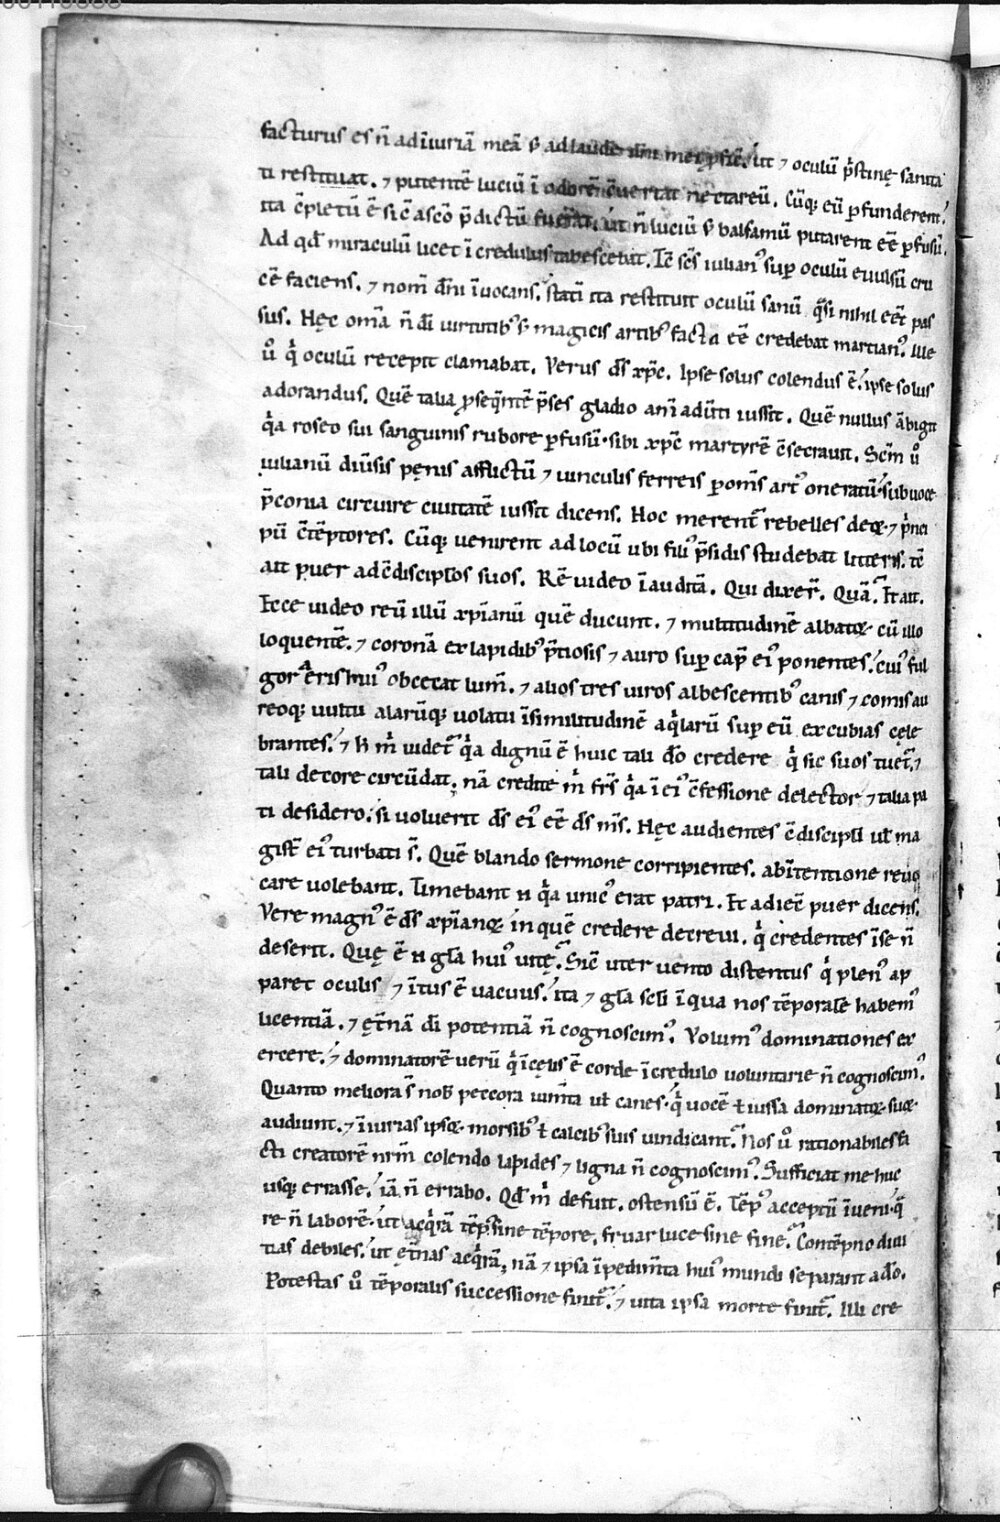 facturus es n̄ ad īiuriā meā s̓ ad laudē dn̄i mei ꝓfic̄. ut ⁊ oculū p̓stinę sanita
ti restituat. ⁊ putentē luciū ī odorē c̄uertat nectareū. Cūq; eū ꝑfunderent.
ita c̄pletū ē sic̄ a sc̄o p̄dictū fuerat. ut n̄ luciū s̓ balsamū putarent eē̄ ꝑfusū.
Ad qd̄ miraculū licet īcredulus tabescebat. Tc̄ sc̄s iulian᾿ sup̱ oculū euulsū cru
cē faciens. ⁊ nom̄ dn̄i īuocans. statī ita restituit oculū sanū q̓si nihil eēt pas
sus. Hęc om̄a n̄ dī uirtutib᾿ s̓ magicis artib᾿ facta eē̄ credebat martian᾿. Ille
ů q̓ oculū recepit clamabat. Verus ds̄ xp̄c. Ipse solus colendus ē. ipse solus
adorandus. Quē talia ꝓseq̄ntē p̄ses gladio anīaduti iussit. Quē nullus ābigit
q̓a roseo sui sanguinis rubore ꝑfusū. sibi xp̄c martyrē c̄secrauit. Scm̄ ů
iulianū diūsis pęnis afflictū ⁊ uinculis ferreis ꝑ om̄s art᾿ oneratū. sub uoce
p̄conia circuire ciuitatē iussit dicens. Hoc merent᾿ rebelles deoꝝ. ⁊ p̓nci
pū c̄tēptores. Cūq; uenirent ad locū ubi fili᾿ p̄sidis studebat litteris. tc̄
ait puer ad c̄discipl̄os suos. Rē uideo īauditā. Qui dixer̄. Quā. Et ait.
Ecce uideo reū illū xp̄ianū quē ducunt. ⁊ multitudinē albatoꝝ cū illo
loquentē. ⁊ coronā ex lapidib᾿ p̄tiosis ⁊ auro sup̱ cap̄ ei᾿ ponentes. cui᾿ ful
gor aeris hui᾿ obcecat lum̄. ⁊ alios tres uiros albescentib᾿ canis ⁊ comis au
reoq; uultu alarūq; uolatu īsimilitudinē aq̓larū sup̱ eū excubias cęle
brantes. ⁊ h̄ m̓ uidet᾿ q̓a dignū ē huic tali dō credere q̓ sic suos tuet᾿. ⁊
tali decore circūdat. nā credite m̓ frs̄ q̓a ī ei᾿ c̄fessione delector ⁊ talia pa
ti desidero. si uoluerit ds̄ ei᾿ eē̄ ds̄ m̄s. Hęc audientes c̄discipl̄i ul̄ ma
gist̄ ei᾿ turbati s̄. Quē blando sermone corripientes. ab ītentione reuo
care uolebant. Timebant n̄ q̓a unic᾿ erat patri. Et adiec̄ puer dicens.
Vere magn᾿ ē ds̄ xp̄ianoꝝ in quē credere decreui. q̓ credentes īse n̄
deserit. Quę ē n̄ gl̄a hui᾿ uitę. Sic̄ uter uento distentus q̓ plen᾿ ap
paret oculis ⁊ ītus ē uacuus. ita ⁊ gl̄a scl̄i īqua nos tēporalē habem᾿
licentiā. ⁊ ęt̄nā dī potentiā n̄ cognoscim᾿. Volum᾿ dominationes ex
ercere. ⁊ dominatorē uerū q̓ īcęlis ē corde īcredulo uoluntarie n̄ cognoscim᾿.
Quanto meliora s̄ nob̄ peccora iumt̄a ul̄ canes. q̓ uocē ⁊ iussa dominatoꝝ suoꝝ
audiunt. ⁊ īiurias ipsoꝝ morsib᾿ ⁊ calcib᾿ suis uindicant. Nos ů rationabiles fa
cti creatorē nr̄m colendo lapides ⁊ ligna n̄ cognoscim᾿. Sufficiat me huc
usq; errasse. iā n̄ errabo. Qd̄ m̓ defuit. ostensū ē. Tēp᾿ acceptū īueni. q̓
re n̄ laborē. ut acq̓rā tēp᾿ sine tēpore. fruar luce sine fine. Contēpno diui
tias debiles. ut ęt̄nas acq̓rā. nā ⁊ ipsa īpedimt̄a hui᾿ mundi separant a dō.
Potestas ů tēporalis successione finit᾿. ⁊ uita ipsa morte finit᾿. Illi cre